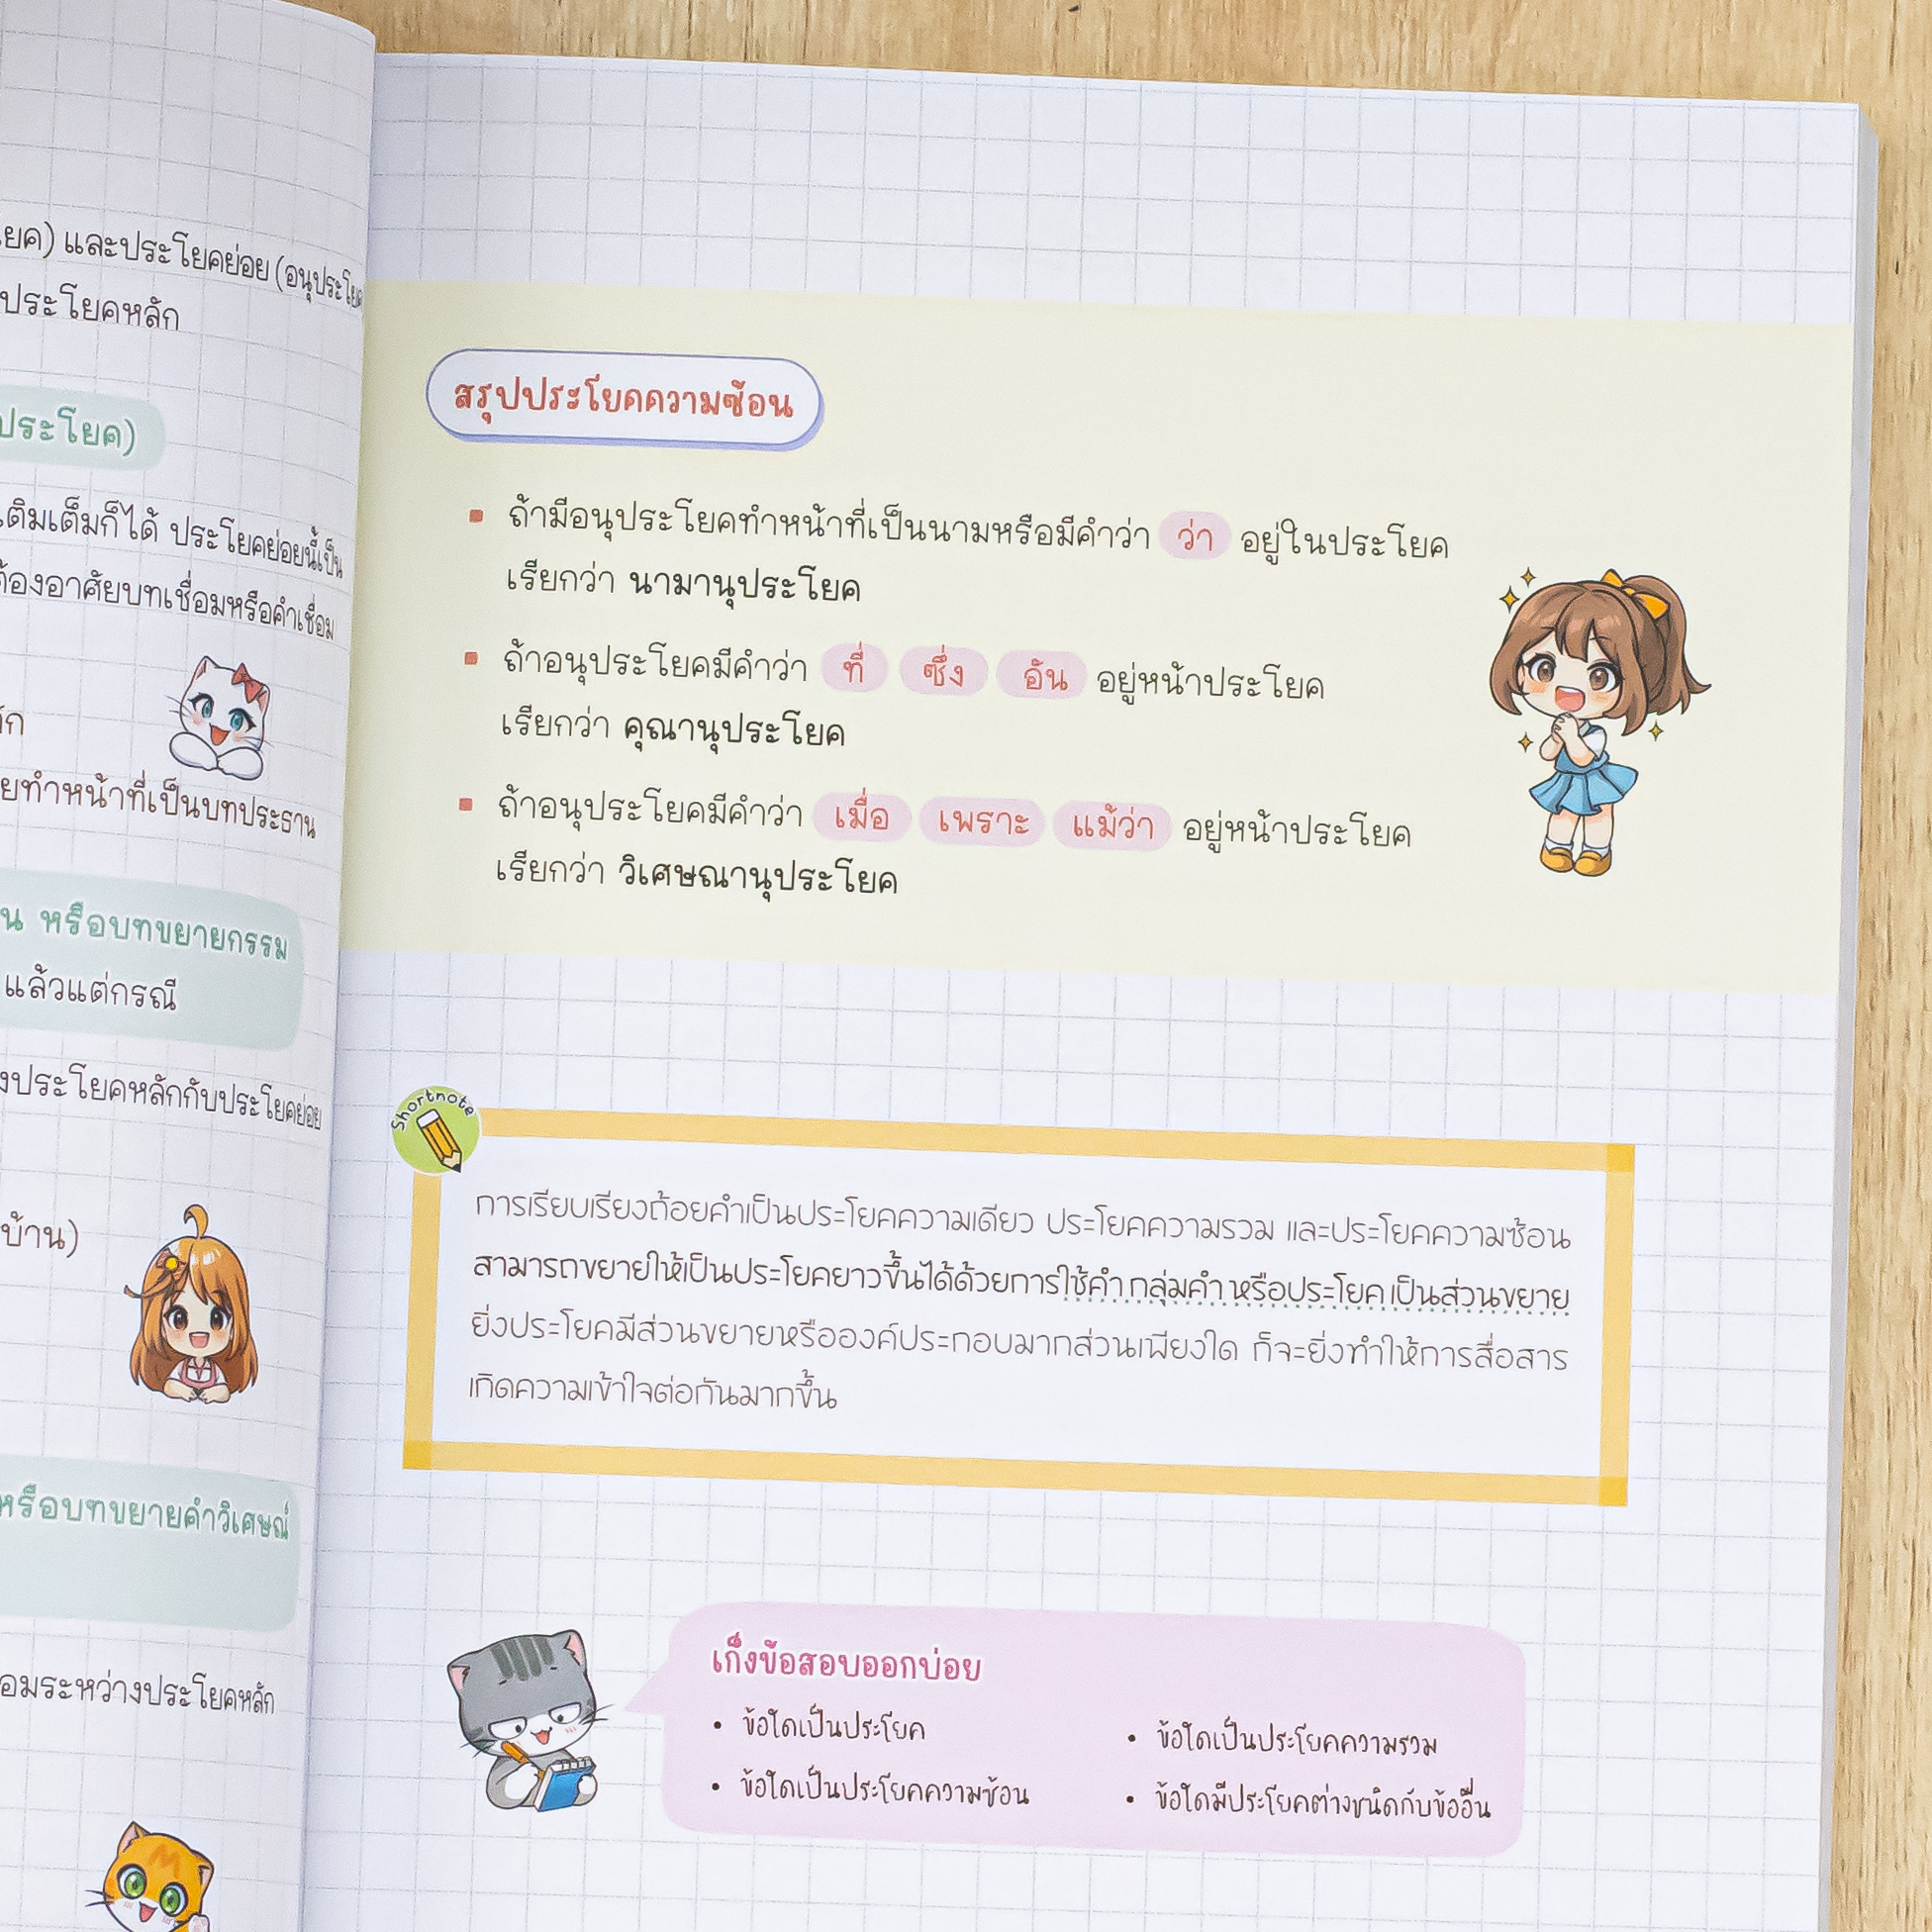 และประโยคย่อย (อนุประโยค
ประโยคหลัก
ประโยค)
เติมเต็มก็ได้ ประโยคย่อยนี้เป็น
ต้องอาศัยบทเชื่อมหรือคำเชื่อม
ทำหน้าที่เป็นบทประธาน
หรือบทขยายกรรม
แล้วแต่กรณี
ประโยคหลักกับประโยคย่อย
บ้าน)
หรือบทขยายคำวิเศษณ์
ระหว่างประโยคหลัก
สรุปประโยคความซ้อน
ถ้ามีอนุประโยคทำหน้าที่เป็นนามหรือมีคำว่า ว่า อยู่ในประโยค
เรียกว่า นามานุประโยค
ถ้าอนุประโยคมีคำว่า ที่ ซึ่ง อัน อยู่หน้าประโยค
เรียกว่า คุณานุประโยค
ถ้าอนุประโยคมีคำว่า เมื่อ เพราะ แม้ว่า อยู่หน้าประโยค
เรียกว่า วิเศษณานุประโยค
Shortnote
การเรียบเรียงถ้อยคำเป็นประโยคความเดียว ประโยคความรวม และประโยคความซ้อน
สามารถขยายให้เป็นประโยคยาวขึ้นได้ด้วยการใช้คำ กลุ่มคำ หรือประโยค เป็นส่วนขยาย
ยิ่งประโยคมีส่วนขยายหรือองค์ประกอบมากส่วนเพียงใด ก็จะยิ่งทำให้การสื่อสาร
เกิดความเข้าใจต่อกันมากขึ้น
เก็งข้อสอบออกบ่อย
• ข้อใดเป็นประโยค
• ข้อใดเป็นประโยคความซ้อน
• ข้อใดเป็นประโยคความรวม
• ข้อใดมีประโยคต่างชนิดกับข้ออื่น